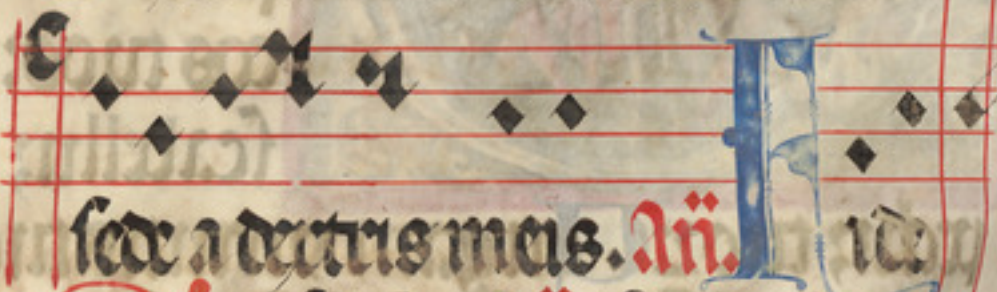 sede a dextris meis. Añ. Fide